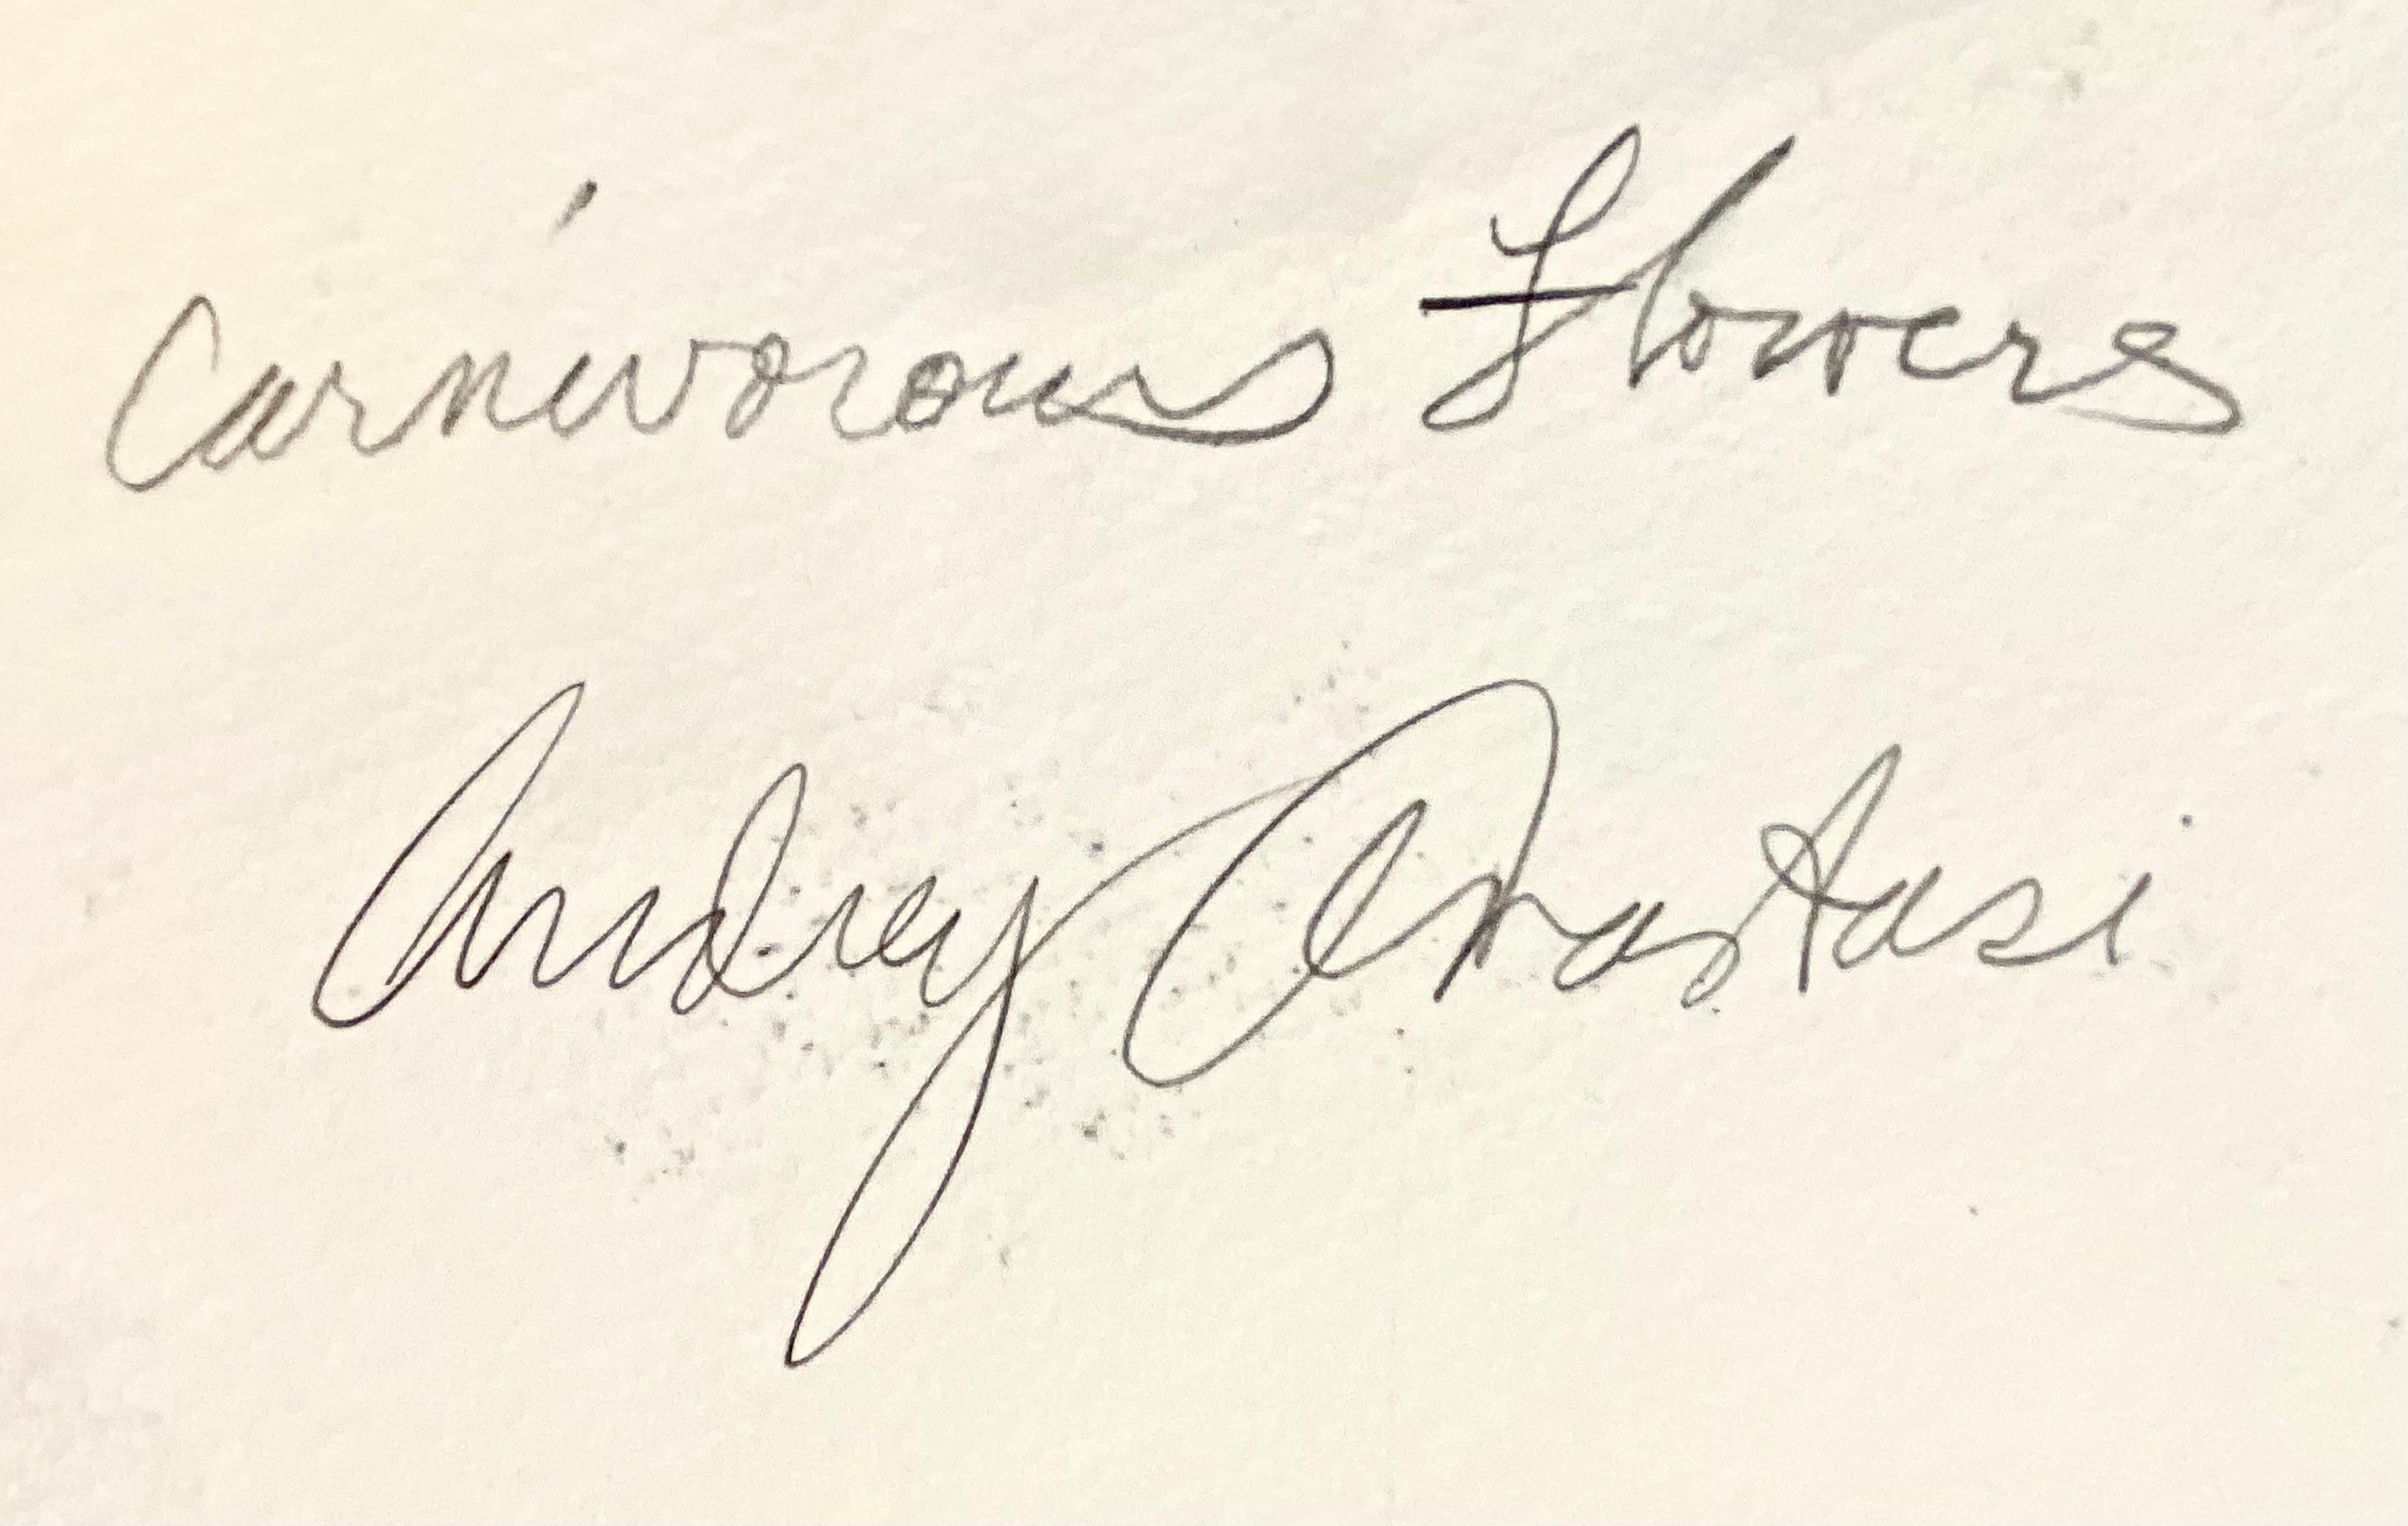 Carnivorous Flowers
Audrey Anastasi